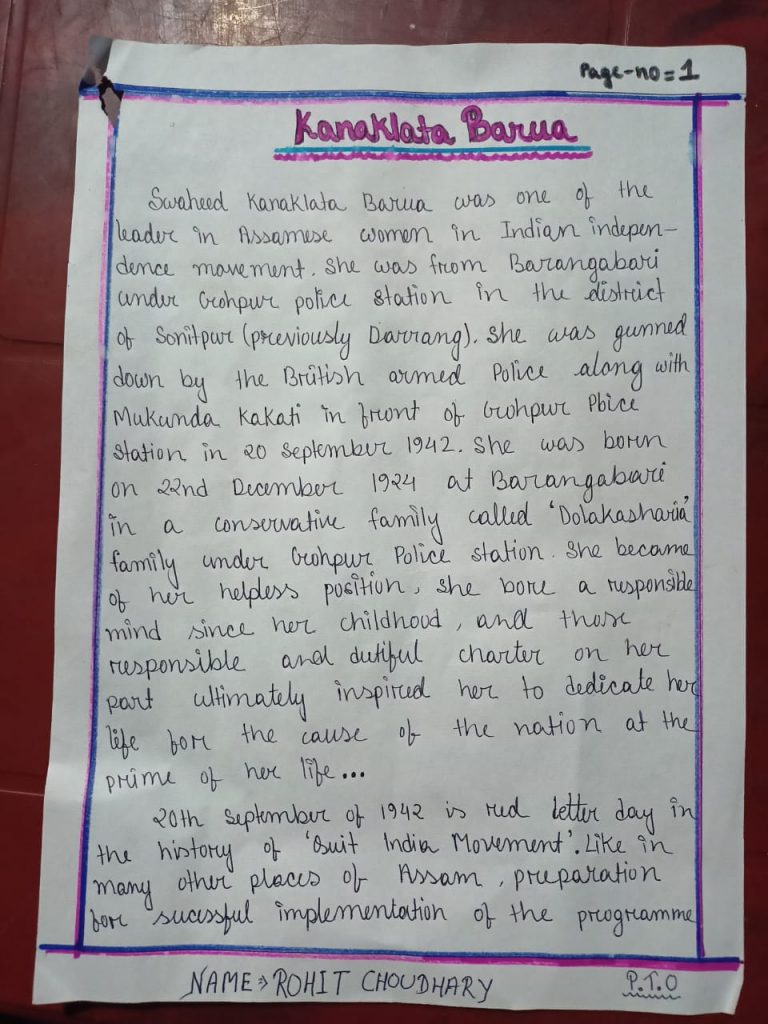 Page-no=1
Kanaklata Barua
Swaheed Kanaklata Barua was one of the
leader in Assamese women in Indian indepen-
dence movement. She was from Barangabari
under Gohpur police station in the district
of Sonitpur (previously Darrang). She was gunned
down by the British armed Police along with
Mukunda Kakati in front of Gohpur Police
Station in 20 September 1942. She was born
on 22nd December 1924 at Barangabari
in a conservative family called 'Dolakasharia'
family under Gohpur Police station. She became
of her helpless position, she bore a responsible
mind since her childhood, and those
responsible and dutiful charter on her
part ultimately inspired her to dedicate her
life for the cause of the nation at the
prime of her life...
20th September of 1942 is red letter day in
the history of 'Quit India Movement'. Like in
many other places of Assam, preparation
for sucessful implementation of the programme
NAME⇒ROHIT CHOUDHARY
P.T.O